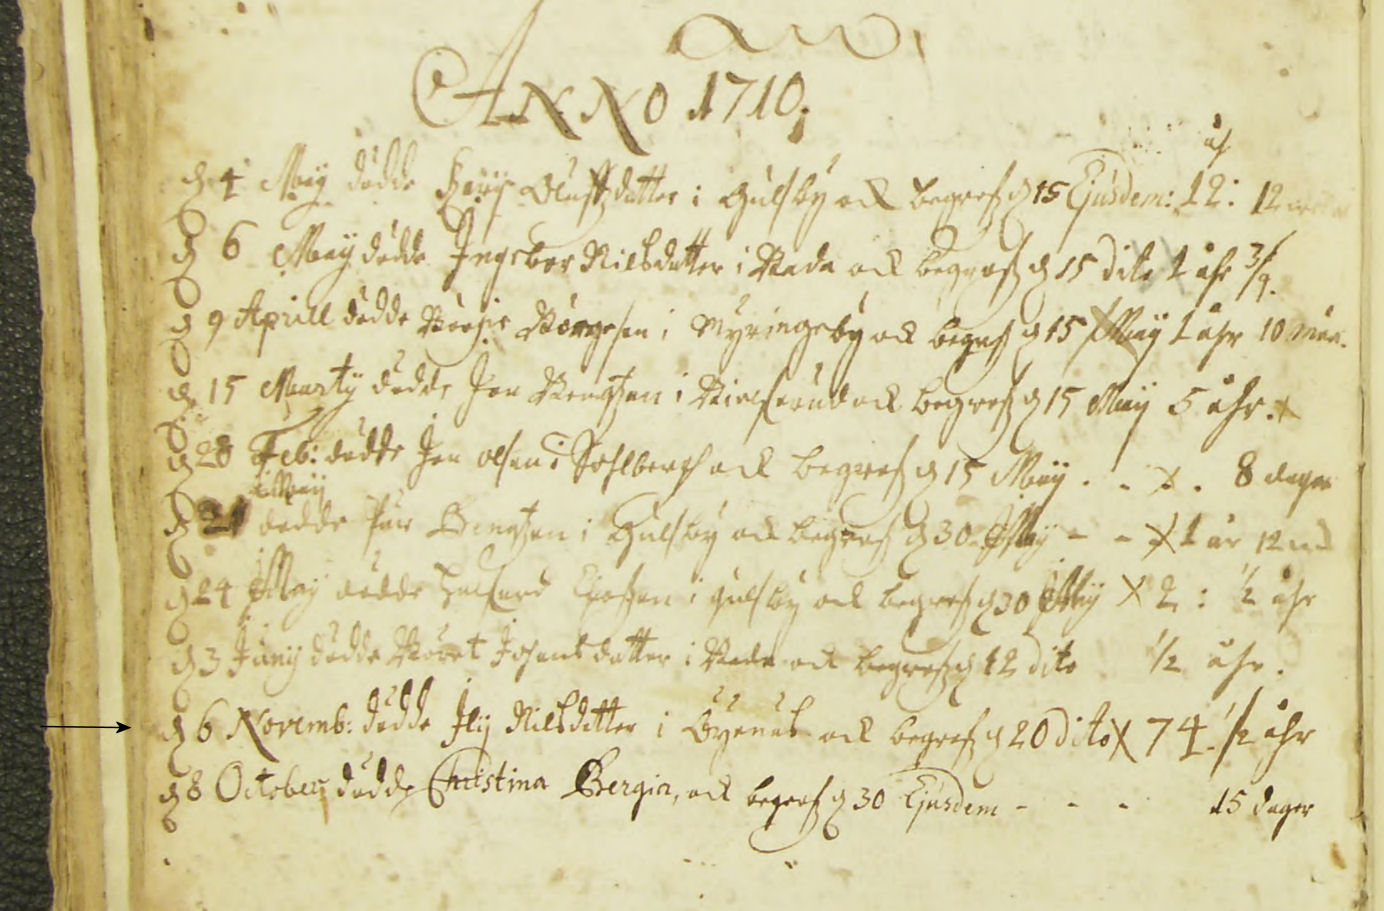 ANNO 1710;
åhr
d 4 Maij dödde Oluffzdatter i Gulsby ock begrofz d 15 Ejusdem: 12: 12
d 6 Maij dödde Ingebor Nilsdatter i Rada ock begrofz d 15 dito 1 åhr 3/9.
d 9 Aprill dödde Börgesen i Myringsby ock begrofz d 15 Maij 1 åhr 10 mån.
d 15 Marty dödde Jon Bengtzen i ock begrofz d 15 Maij 5 åhr. x
d 28 Feb: dödde Jon olsen i Sohlbergh ock begrofz d 15 Maij . . x . 8 dager
Maij
d 21 dödde Pär Bengtzen i Gulsby ock begrofz d 30 Maij - - x 1 år 12
d 24 Maij dödde i gulsby ock begrofz d 30 Maij x 2 : 1/2 åhr
d 3 Junij dödde datter i Rada ock begrofz d 12 dito 1/2 åhr.
d 6 Novemb: dödde Nilsdatter i ock begrofz d 20 dito x 74 1/2 åhr
d 8 October dödde Christina Bergia, ock begrofz d 30 Ejusdem - - - 15 dager